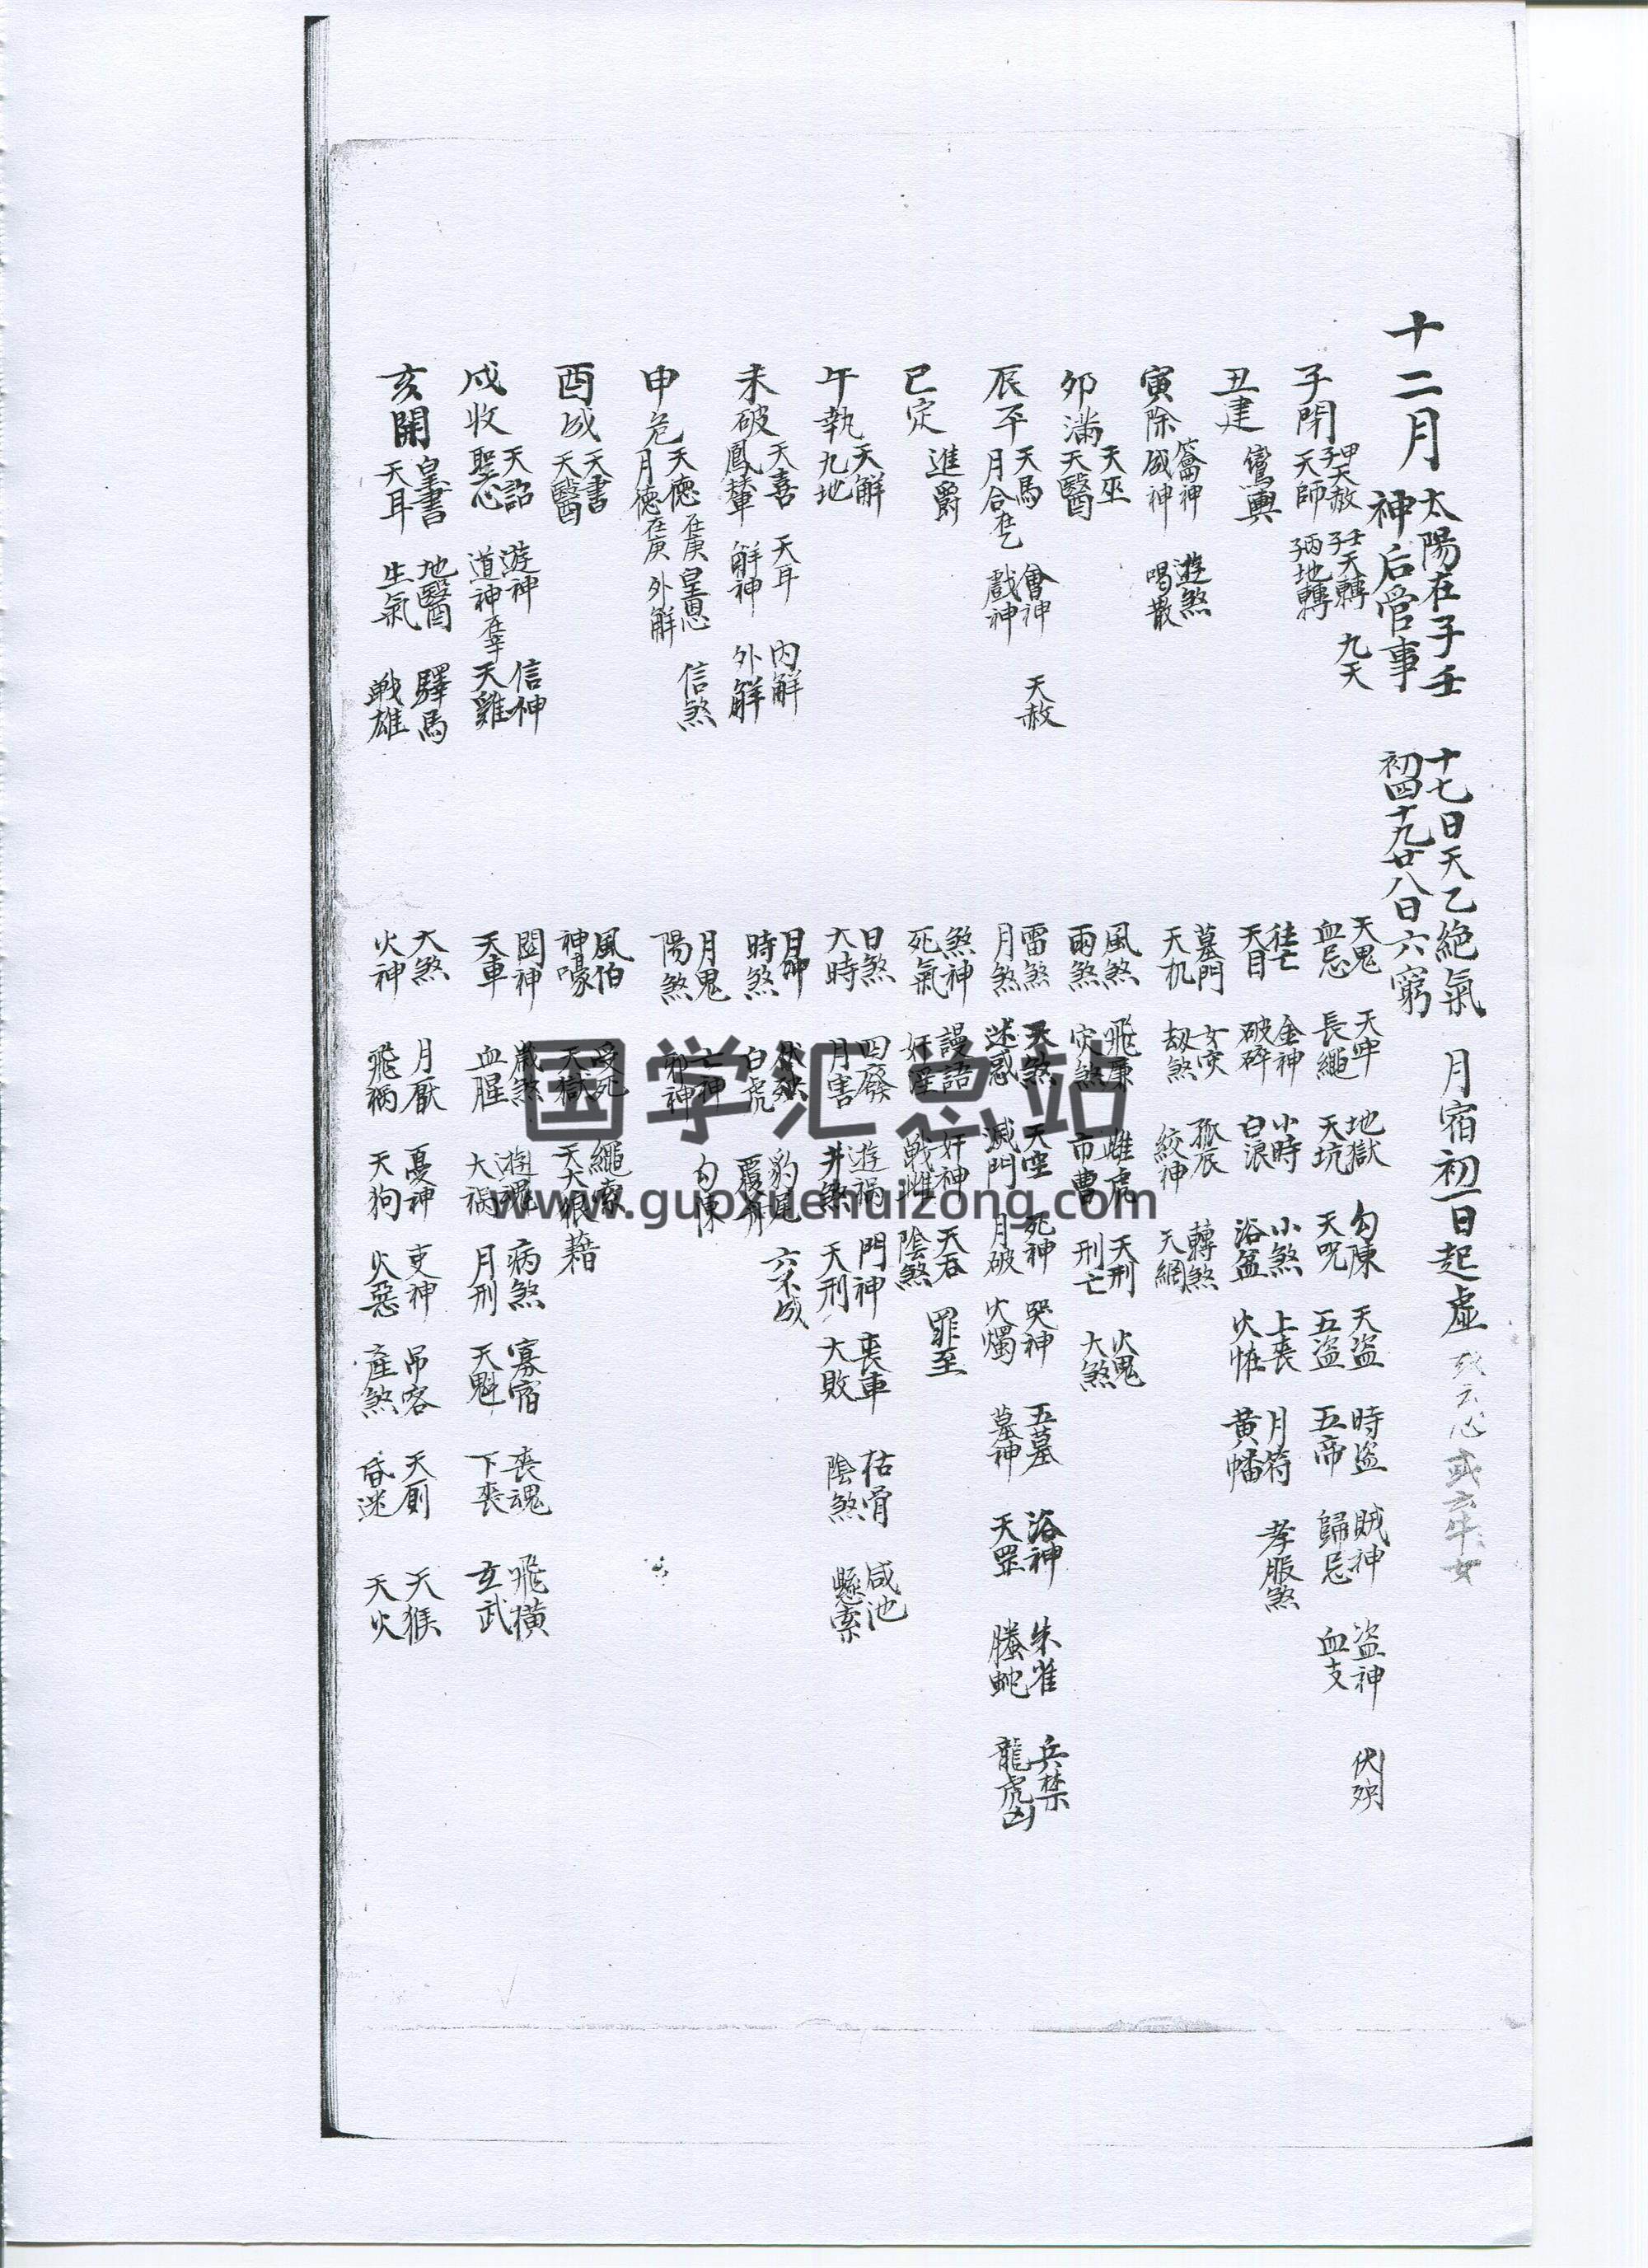 十二月
太陽在子壬
神后管事
十七日天乙絶氣
初四十九廿八日六窮
月宿初一日起虚
或玄牛女
子閉
甲子天赦 壬子天轉 九天
天師 丙子地轉
天鬼 天牢 地獄 勾陳 天盜 時盜 賊神 盜神 伏殃
血忌 長繩 天坑 天呪 五盜 五帝 歸忌 血支
丑建
鸞輿
往亡 金神 小時 小煞 上喪 月符 孝服煞
天目 破碎 白浪 浴盆 火怪 黄幡
寅除
籥神 遊煞
成神 喝散
墓門 女灾 孤辰 轉煞
天机 劫煞 絞神 天網
卯滿
天巫
天醫
風煞 飛廉 雌虎 天刑 火鬼
雨煞 灾煞 市曹 刑亡 大煞
辰平
天馬 會神 天赦
月合在乙 戲神
雷煞 天煞 天空 死神 哭神 五墓 浴神 朱雀 兵禁
月煞 迷惑 滅門 月破 火燭 墓神 天罡 螣蛇 龍虎凶
巳定
進爵
煞神 謾語 奸神 天吞 罪至
死氣 奸淫 戦雌 陰煞
午執
天解
九地
日煞 四廢 遊禍 門神 喪車 枯骨 咸池
大時 月害 井煞 天刑 大敗 陰煞 懸索
未破
天喜 天耳 内解
鳳輦 解神 外解
伏殃 豹尾 六不成
時煞 白虎
申危
天德在庚 皇恩 信煞
月德在庚 外解
月鬼 亡神 勾陳
陽煞 邪神
酉成
天書
天醫
風伯 受死 繩索
神嚎 天獄 天大狼藉
戌收
天詔 遊神 信神
聖心 道神在辛 天雞
関神 歲煞 遊魂 病煞 寡宿 喪魂 飛横
天車 血腥 大禍 月刑 天魁 下喪 玄武
亥開
皇書 地醫 驛馬
天耳 生氣 戦雄
大煞 月厭 憂神 吏神 吊客 天厠 天猴
火神 飛禍 天狗 火惡 產煞 昏迷 天火
国学汇总站
www.guoxuehuizong.com